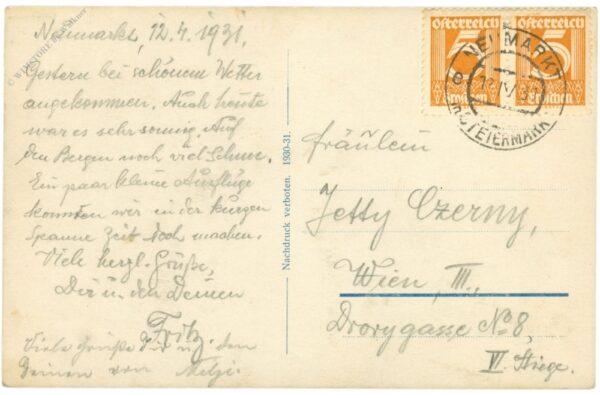 Neumarkt, 12.4.1931.
Gestern bei schönem Wetter
angekommen. Auch heute
war es sehr sonnig. Auf
den Bergen noch viel Schnee.
Ein paar kleine Ausflüge
konnten wir in der kurzen
Spanne Zeit doch machen.
Viele herzl. Grüße,
Dir u. den Deinen
Fritz
Viele Grüße Dir u. den
Deinen von
Nachdruck verboten. 1930-31.
Österreich Österreich
5 5
Groschen Groschen
NEUMARKT
STEIERMARK
Fräulein
Jetty Czerny,
Wien, III.,
Drorygasse No 8,
VI. Stiege.